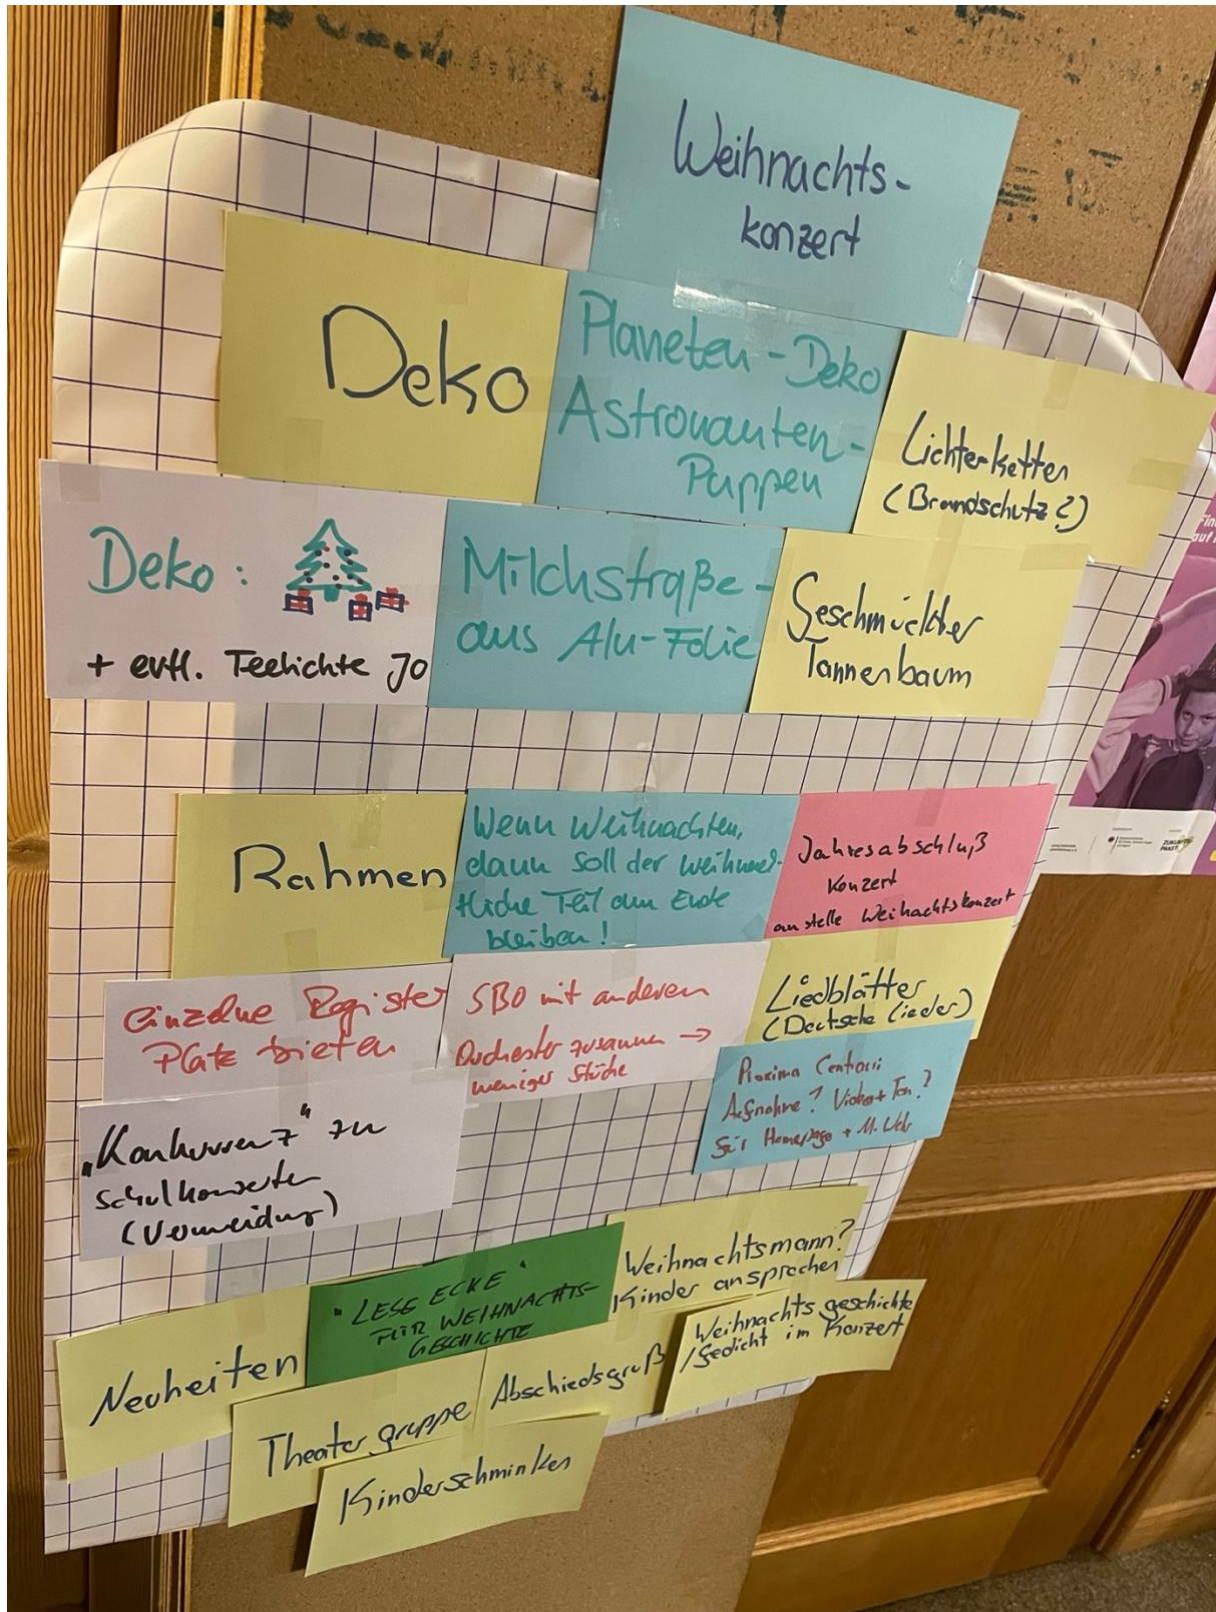 Weihnachts-
konzert
Deko
Planeten-Deko
Astronauten-
Puppen
Lichterketten
(Brandschutz?)
Deko:
+ evtl. Teelichte JO
Milchstraße-
aus Alu-Folie
Geschmückter
Tannenbaum
Rahmen
Wenn Weihnachten,
dann soll der weihnacht-
liche Teil am Ende
bleiben!
Jahresabschluß
Konzert
anstelle Weihachtskonzert
einzelne Register
Platz bieten
SBO mit anderen
Orchester zusammen →
weniger Stücke
Liedblätter
(Deutsche Lieder)
Proxima Centauri
Aufnahme? Video + Ton?
für Homepage + M. Web
„Konkurrenz" zu
Schulkonzerten
(Vermeidung)
Neuheiten
"LESE ECKE"
FÜR WEIHNACHTS-
GESCHICHTE
Weihnachtsmann?
Kinder ansprechen
Weihnachtsgeschichte
/Gedicht im Konzert
Theatergruppe
Abschiedsgruß
Kinderschminken